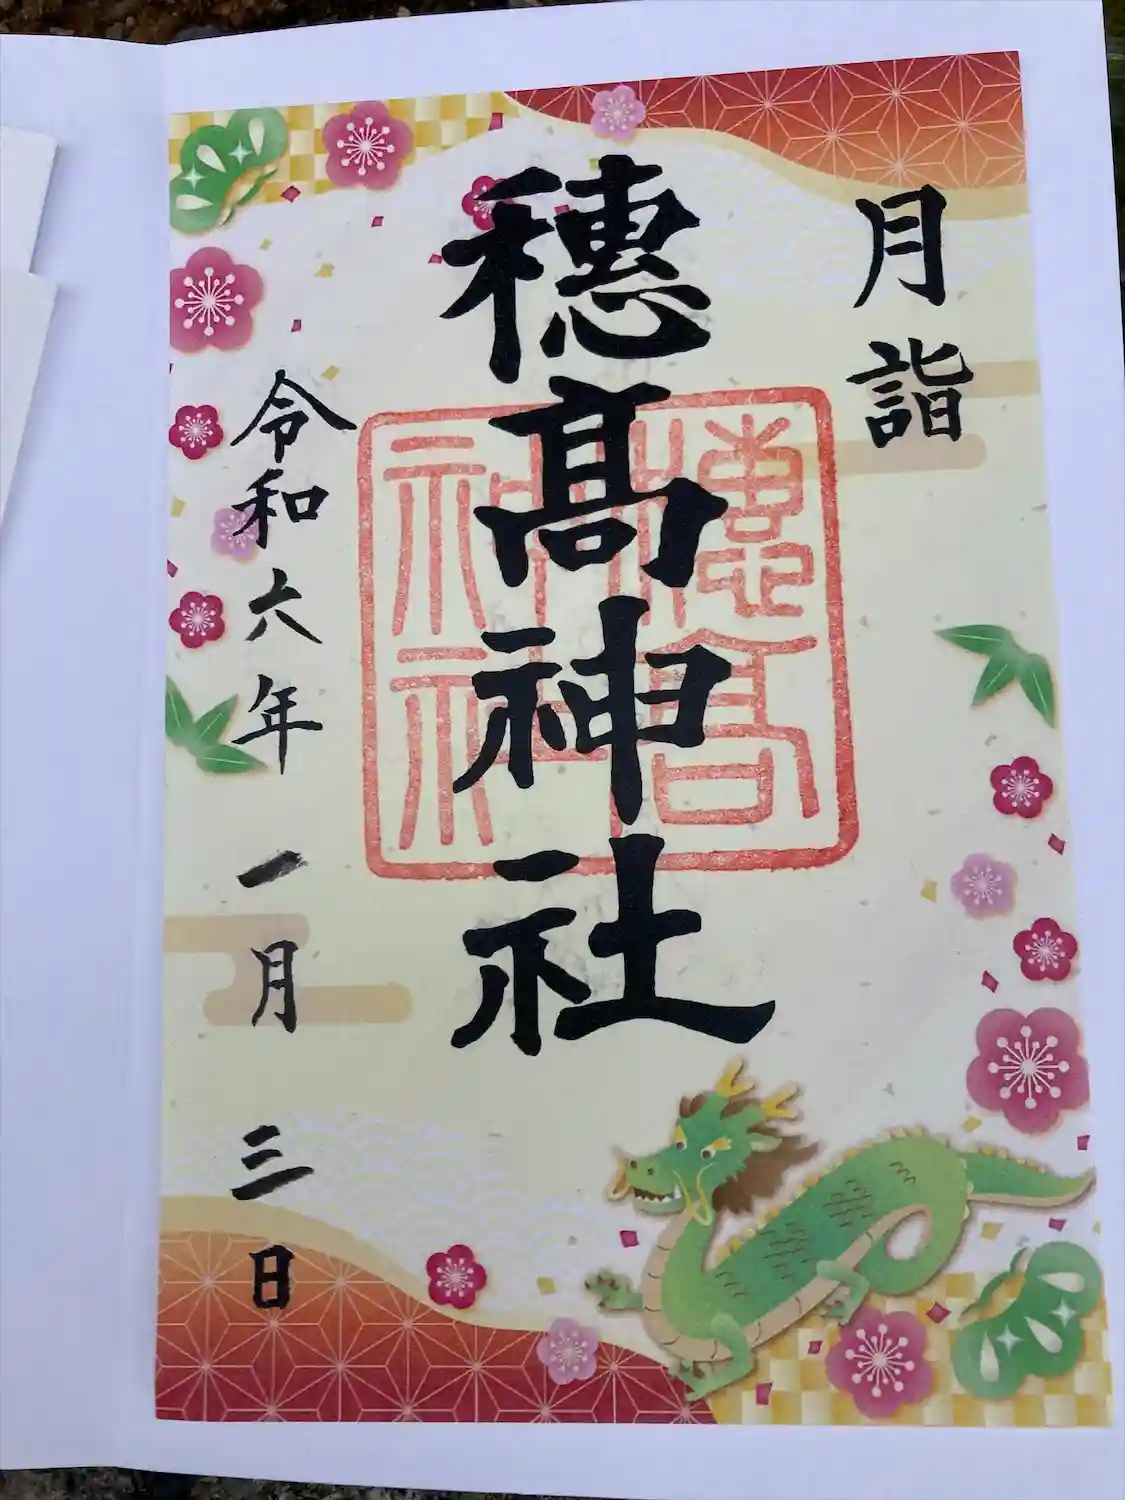 月詣
穗髙神社
穗髙
神社
令和六年一月三日